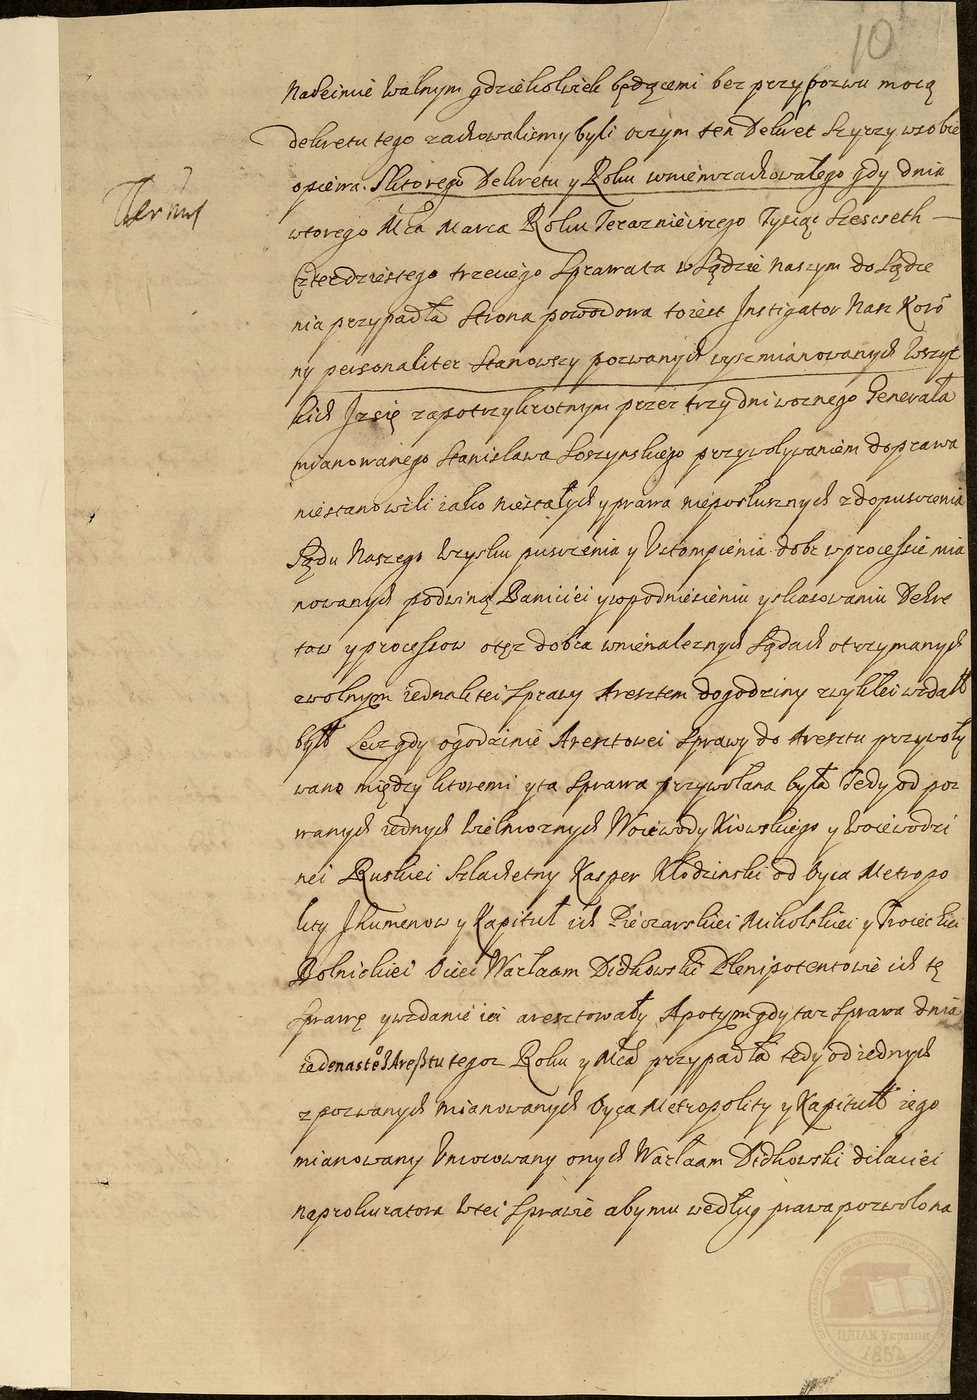 10
naseimie walnym gdziekolwiek będącemi bez przypozwu mocą
dekretu tego zachowalismy byli oczym ten Dekret Szyrzy wsobie
opiewa. Sktorego Dekretu y Roku wniemzachowałego gdy dnia
Termin
wtorego Mca Marca Roku Teraznieiszego Tysiąc Szescseth
Czterdziestego trzeciego Sprawata w Sądzie naszym do Sądze
nia przypadła Strona powodowa toiest Instigator Nasz Koro
ny personaliter Stanowszy pozwanych wyszmianowanych Wszyt
kich Iz się zapotrzykrotnym przez trzy dni woznego Generała
mianowanego Stanisława Soszynskiego przywoływaniem doprawa
niestanowili iako niestałych yprawa nieposłusznych zdopuszczenia
Sądu Naszego Wzysku puszczenia y Ustompienia dobr wprocessie mia
nowanych podwiną Baniciei ywpodniesieniu yskasowaniu Dekre
tow yprocessow otęz dobra wnienaleznych Sądach otrzymanych
zwolnym iednak tei Sprawy Aresztem dogodziny zwykłei wzdałł
byłł Lecz gdy ogodzinie Aresztowei Sprawy do Aresztu przywoły
wano między ktoremi yta Sprawa przywołana była Tedy od poz
wanych iednych Wielmoznych Woiewody Kiowskiego y Woiewodzi
nei Ruskiei Szlachetny Kasper Kłodzinski od Oyca Metropo
lity Ihumenow y Kapituł ich Pieczarskiei Mikolskiei y Troieckiei
Bolnickiei Ociec Warłaam Didkowski Plenipotentowie ich tę
Sprawę ywzdanie iei aresztowały Apotym gdy taz Sprawa dnia
iedenastego Aresztu tegoz Roku y Mca przypadła tedy od iednych
zpozwanych mianowanych Oyca Metropolity y Kapitułł iego
mianowany Umocowany onych Warłaam Didkowski dilaciei
naprokuratora Wtei Sprawie abymu według prawa pozwolona
ЦДІАК України
1852